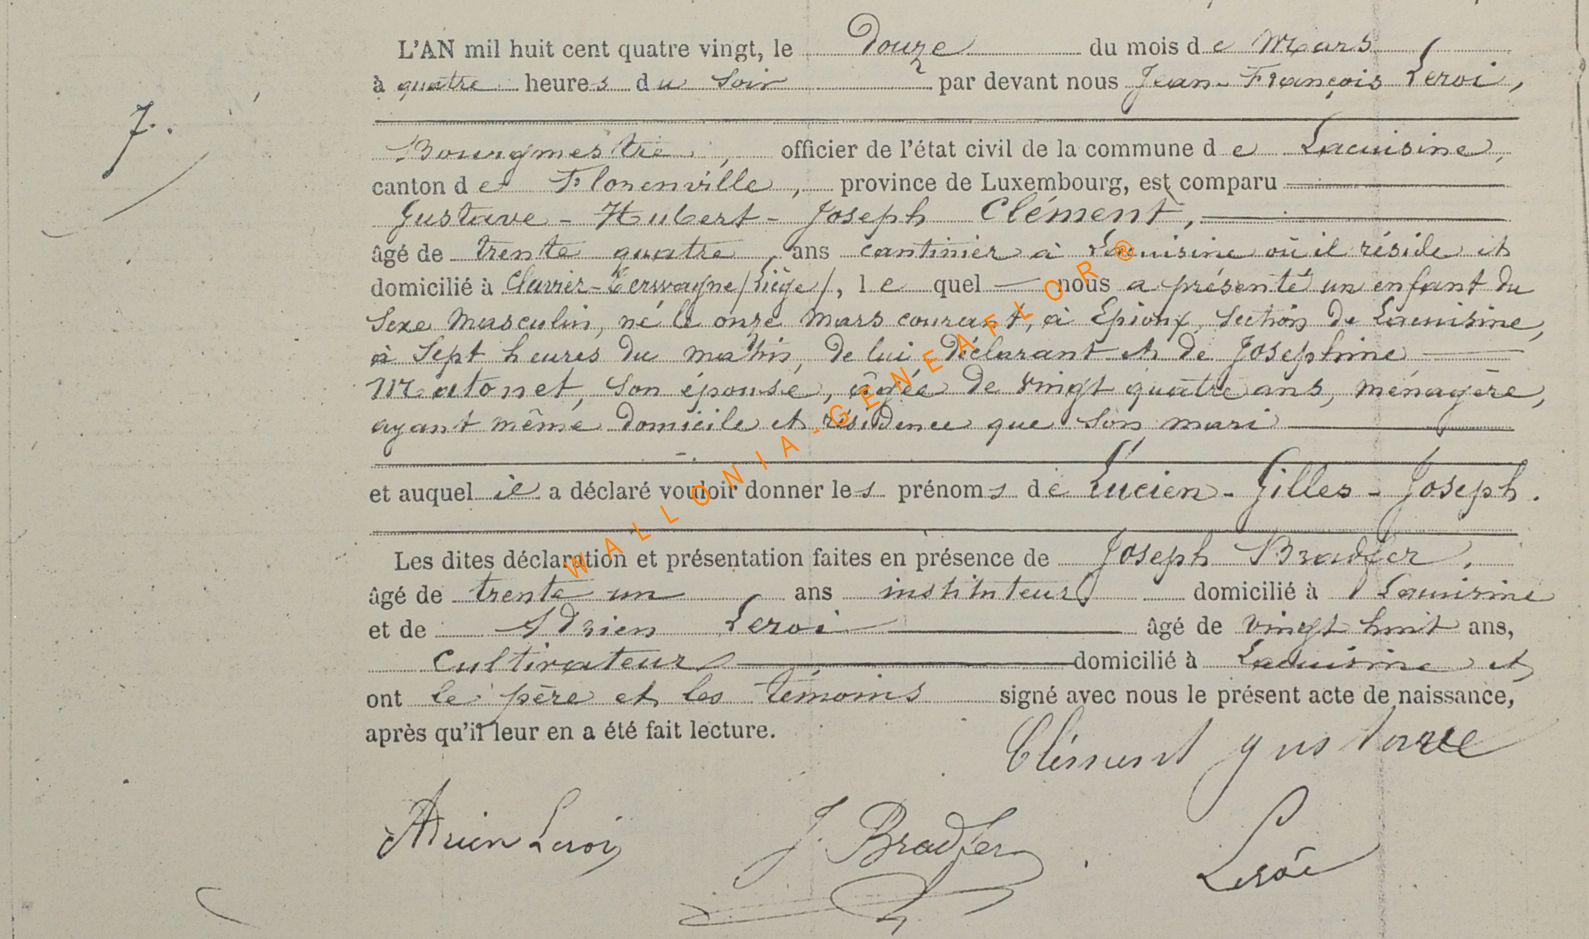 L'AN mil huit cent quatre vingt, le douze du mois de Mars
à quatre heures du soir par devant nous Jean-François Leroi,
7.
Bourgmestre, officier de l'état civil de la commune de Lacuisine,
canton de Florenville, province de Luxembourg, est comparu
Gustave-Hubert-Joseph Clément,
âgé de trente quatre ans cantinier à Lacuisine où il réside et
domicilié à Clavier-Terwagne/Liège/, lequel nous a présenté un enfant du
Sexe Masculin, né le onze Mars courant, à Epioux, section de Lacuisine,
à Sept heures du matin, de lui déclarant et de Joséphine
Matonet, son épouse, âgée de vingt quatre ans, ménagère,
ayant même domicile et résidence que son mari
et auquel il a déclaré vouloir donner les prénoms de Lucien-Gilles-Joseph.
Les dites déclaration et présentation faites en présence de Joseph Bradfer,
âgé de trente un ans instituteur domicilié à Lacuisine
et de Adrien Leroi âgé de vingt huit ans,
cultivateur domicilié à Lacuisine et
ont le père et les témoins signé avec nous le présent acte de naissance,
après qu'il leur en a été fait lecture.
Clément gustave
Adrien Leroi J. Bradfer Leroi
WALLONIA-GENEAFLOR®